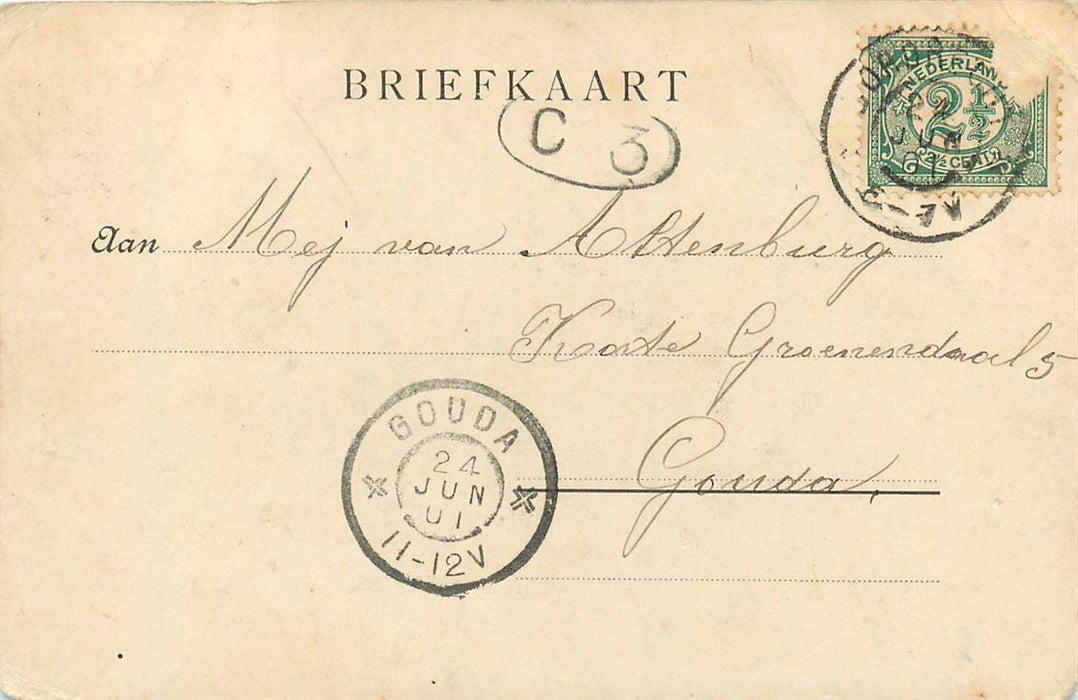 BRIEFKAART
C 3
NEDERLAN
2½
2½ CENT
24
JUN
Aan Mej van Altenburg
Korte Groenendaal 5
Gouda,
GOUDA
24
JUN
01
11-12V